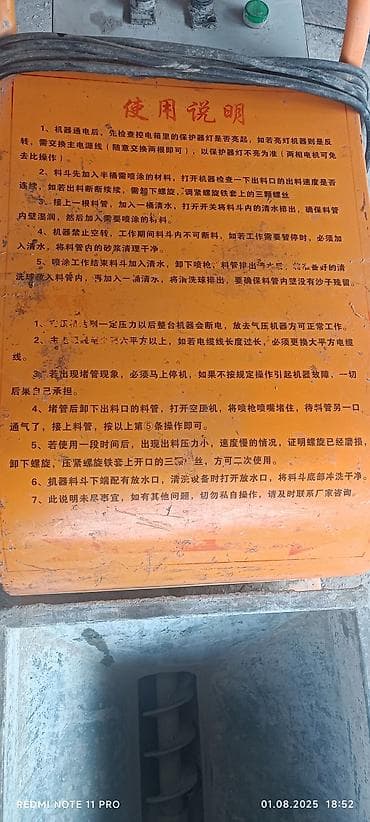 使用说明
1、机器通电后，先检查控电箱里的保护器灯是否亮起，如若亮灯机器则是反
转，需交换主电源线（随意交换两根即可），以保护器灯不亮为准（两相电机可免
去比操作）。
2、料斗先加入半桶需喷涂的材料，打开机器检查一下出料口的出料速度是否
连续，如若出料断断续续，需卸下螺旋，调紧螺旋铁套上的三颗螺丝
3、接上一根料管，加入一桶清水，打开开关将料斗内的清水排出，确保料管
内壁湿润，然后加入需要喷涂的材料。
4、机器禁止空转，工作期间料斗内不可断料，如若工作需要暂停时，必须加
入清水，将料管内的砂浆清理干净。
5、喷涂工作结束料斗加入清水，卸下喷枪、料管排出
好的清
洗球放入料管内，再加入一桶清水，将清洗球排出，要确保料管内壁没有沙子残留。
1、
到一定压力以后整台机器会断电，放去气压机器方可正常工作。
2、主
六平方以上，如若电缆线长度过长，必须更换大平方电缆
线。
3、若出现堵管现象，必须马上停机，如果不按规定操作引起机器故障，一切
后果自己承担。
4、堵管后卸下出料口的料管，打开空压机，将喷枪喷嘴堵住，待料管另一口
通气了，接上料管，按以上第⑤条操作即可。
5、若使用一段时间后，出现出料压力小，速度慢的情况，证明螺旋已经磨损，
卸下螺旋，压紧螺旋铁套上开口的三
丝，方可二次使用。
6、机器料斗下端配有放水口，清洗设备时打开放水口，将料斗底部冲洗干净。
7、此说明未尽事宜，如有其他问题，切勿私自操作，请及时联系厂家咨询。
REDMI NOTE 11 PRO
01.08.2025 18:52